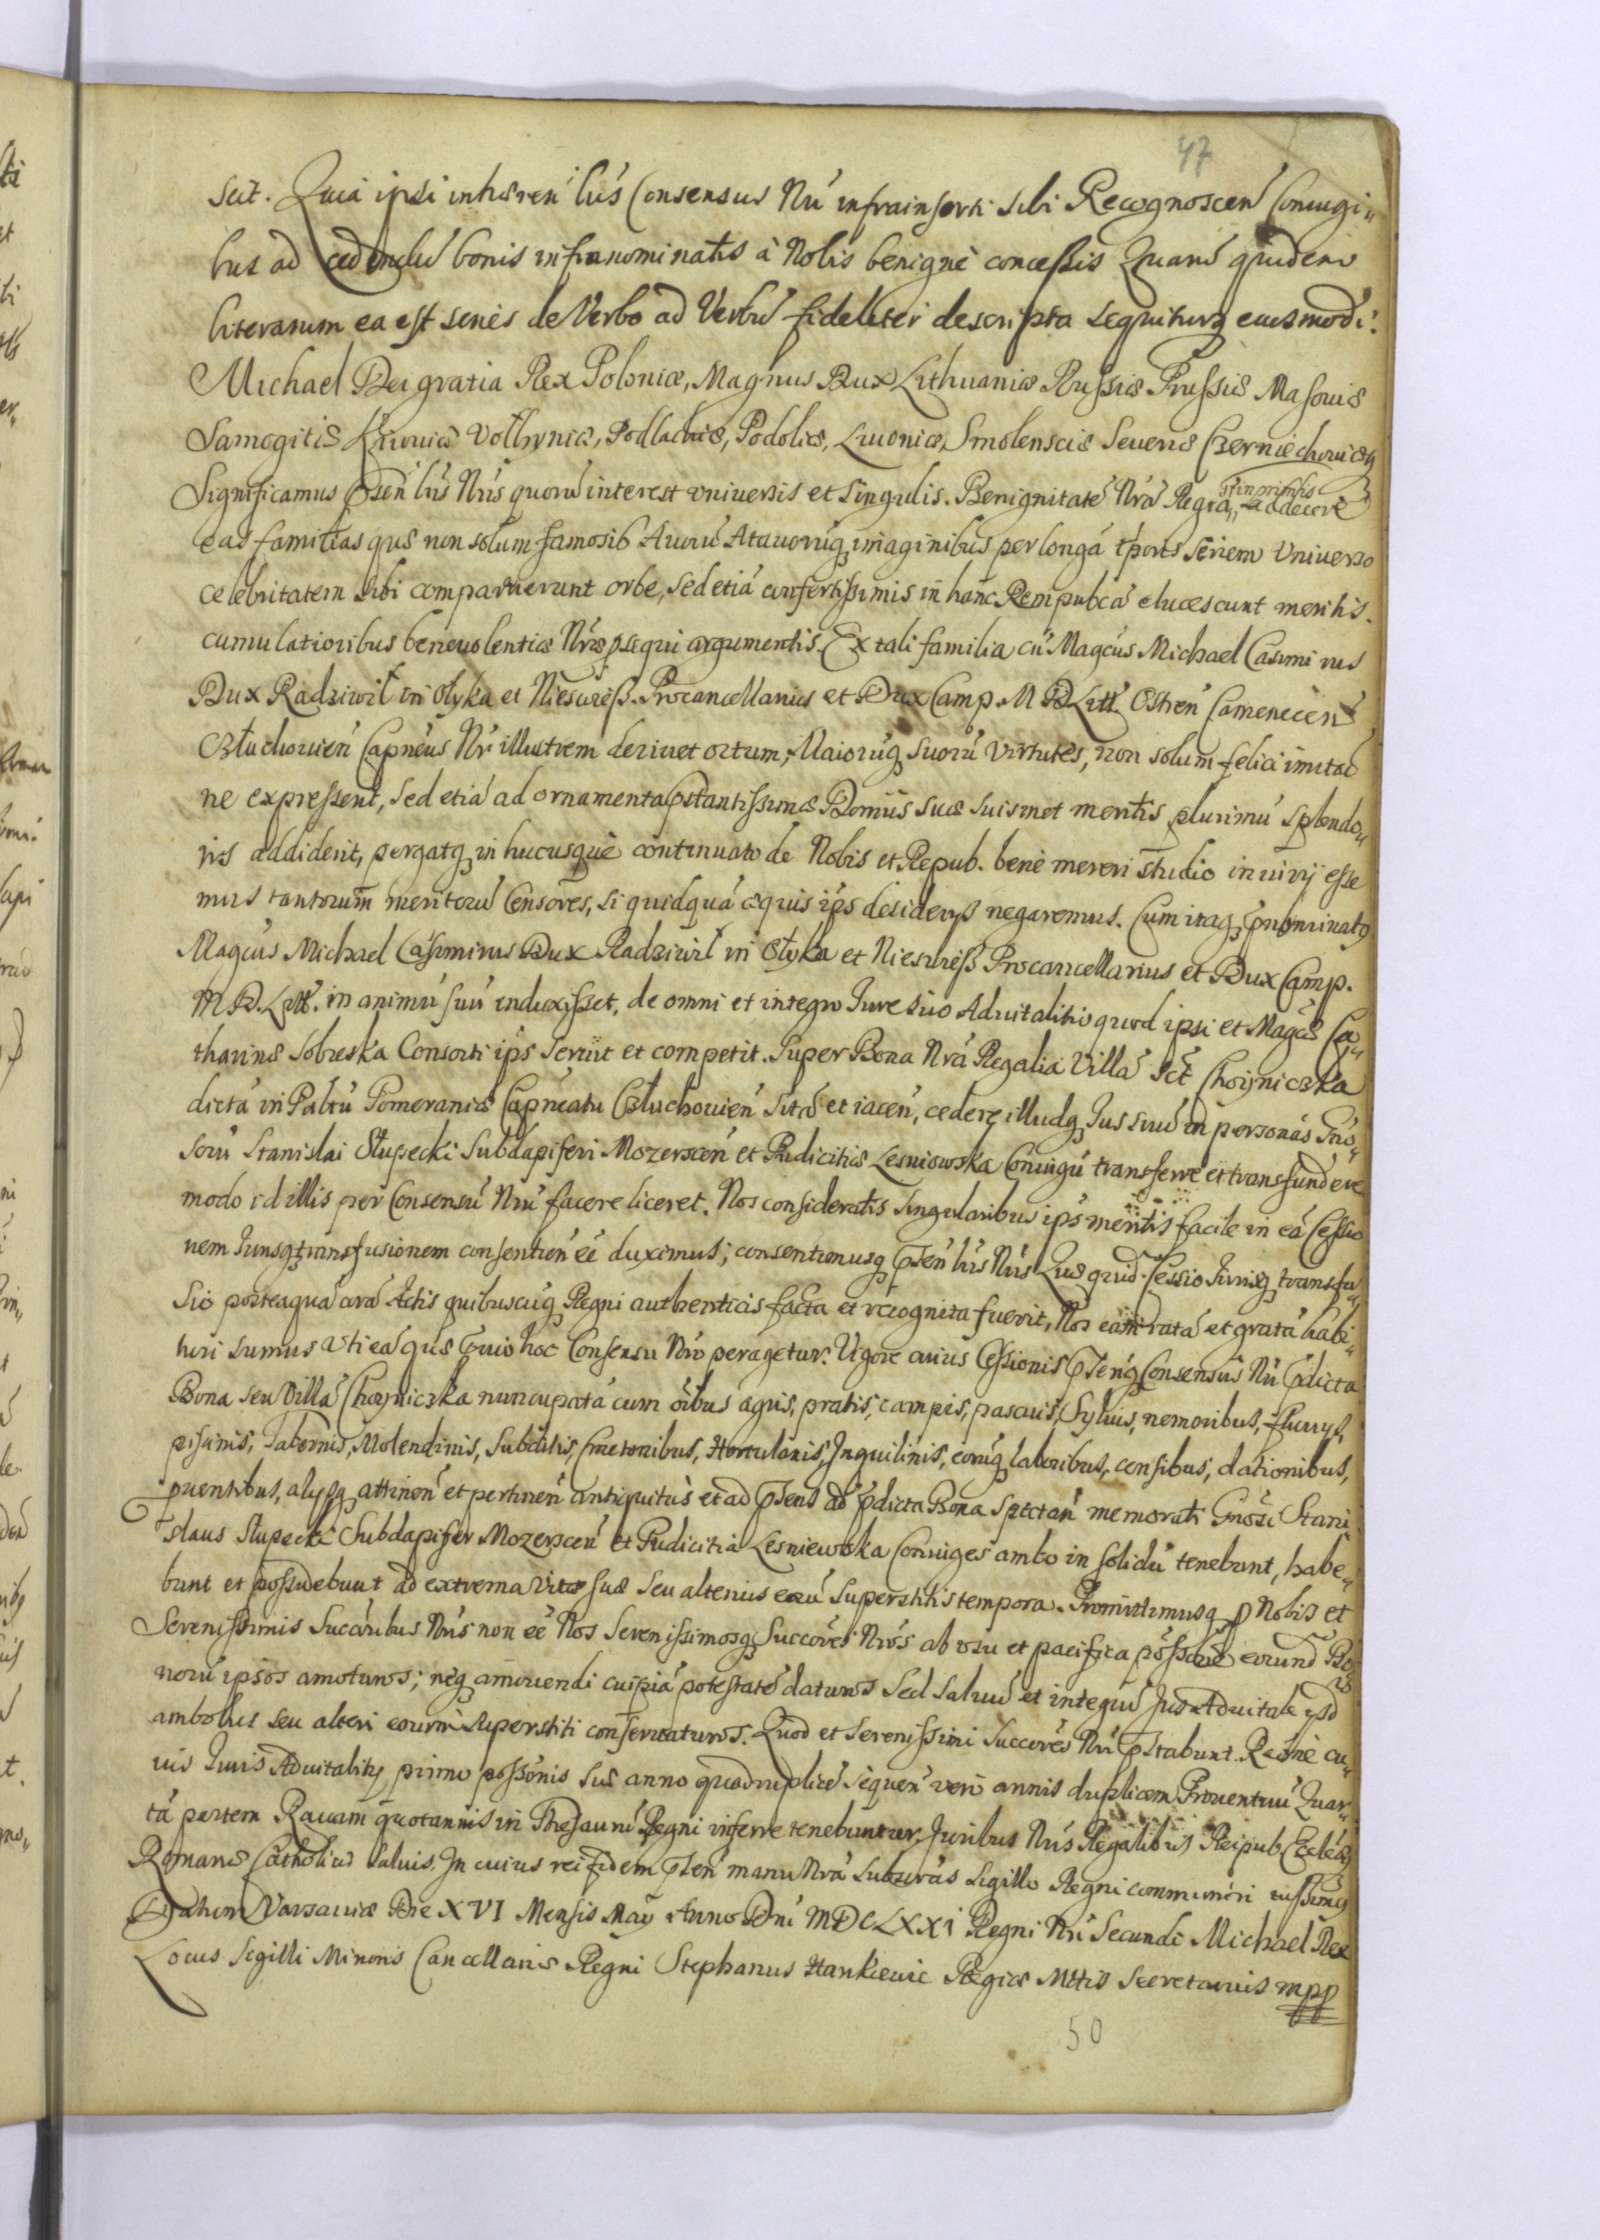 47
scit. Quia ipsi inhæren' l'us Consensus Nri' infrainserti sibi Recognoscen' Coniugi„
bus ad cedendu' bonis infranominatis à Nobis benignè concessis Quaru' quidem
literarum ea est seriès de Verbo ad Verbu' fideliter descripta sequiturq eiusmodi.
Michael Dei gratia Rex Poloniæ, Magnus Dux Lithuaniæ Russiæ Prussiæ Masouiæ
Samogitiæ Kijouiæ Volhyniæ, Podlachiæ, Podoliæ, Liuoniæ, Smolensciæ Seueriæ Czerniechouiæq
Significamus Psen' l'us Nris quoru' interest vniuersis et singulis. Benignitate' Nra' Regia„ st in primis addecere
eas familias quæ non solum famosis Auoru' Atauorumq imaginibus per longa' tporis seriem Vniuerso
celebritatem sibi comparuerunt orbe, sed etia' confertissimis in hanc Rempubca' elucescunt meritis.
cumulatioribus beneuolentiæ Nræ psequi argumentis. Ex tali familia cu' Magcus Michael Casimirus
Dux Radziwił in Ołyka et Nieswieß. Procancellarius et Dux Camp. M D Litt. Ostren' Camenecen'
Człuchouien' Capneus Nr illustrem deriuet ortum, Maiorumq suoru' virtutes, non solum felici imitao
ne expresserit, sed etia' ad ornamenta pstantissimæ Domus suæ suismet meritis plurimu' splendo„
ris addiderit, pergatq in hucusquè continuato de Nobis et Repub. benè mereri studio iniurij esse
mus tantorum meritoru' Censores, si quidqua' æquis ips desiderijs negaremus. Cum itaq pnominatq
Magcus Michael Casimirus Dux Radziwił in Ołyka et Nieswieß Procancellarius et Dux Camp.
M D. Litt. in animu' suu' induxisset, de omni et integro Jure suo Aduitalitio quod ipsi et Magcæ Ca„
tharinæ Sobieska Consorti ips seruit et competit. Super Bona Nra' Regalia Villa' sct Choyniczka
dicta' in Paltu' Pomeraniæ Capneatu Człuchouien' sita' et iacen', cedere illudq Jus suu' in personas Gno„
soru' Stanislai Słupecki Subdapiferi Mozerscen' et Pudicitiæ Lesniewska Coniugu' transferre et transfundere
modo id illis per Consensu' Nru' facere liceret. Nos consideratis singularibus ips meritis facile in ea' Cessio
nem Jurisq transfusionem consentien' eē duximus; consentimusq Psen' l'us Nris Quæ quid. Cessio Jurisq transfu„
sio posteaqua' cora' Actis quibuscunq Regni authenticis facta et recognita fuerit, Nos eam rata' et grata' habi„
turi sumus Vti ea quæ Cuio hoc Consensu Nro peragetur. Vigore cuius Cessionis Psenq Consensus Nri Pdicta
Bona seu Villa' Choyniczka nuncupata' cum oībus agris, pratis, campis, pascuis, Syluis, nemoribus, fluuijs,
piscinis, Tabernis, Molendinis, Subditis, Cmetonibus, Hortulanis, Inquilinis, eorumq laboribus, censibus, dationibus,
puentibus, alijsq attinen' et pertinen' antiquitùs et ad Psens ad pdicta Bona Spectan' memorati Gnosi Stani
slaus Słupecki Subdapifer Mozerscen' et Pudicitia Lesniewska Coniuges ambo in solidu' tenebunt, habe„
bunt et possidebunt ad extrema vitæ suæ seu alterius eoru' Superstitis tempora. Promittimusq p Nobis et
Serenissimis Succoribus Nris non eē Nos Serenissimosq Succores Nros ab vsu et pacifica possone eorund Bo„
noru' ipsos amoturos; neq amouendi cuipia' potestate' daturos Sed saluu' et integru' Jus Aduitale ipsd
ambobus seu alteri eorum Superstiti conseruaturos. Quod et Serenissimi Succores Nri Pstabunt. Raonè cu„
uis Juris Aduitalitij primo possonis suæ anno quadruplice' sequen' vero annis duplicem Prouentuu' Quar„
ta' partem Rauam quotannis in Thesauru' Regni inferre tenebuntur. Juribus Nris Regalibus Reipub. Ecclæq
Romanæ Catholicæ saluis. In cuius rei fidem Psen' manu Nra' subscras Sigillo Regni communiri iussimus
Datum Varsauiæ Die XVI Mensis Maij Anno Dni MDCLXXI Regni Nri Secundi Michael Rex
Locus Sigilli Minoris Cancellariæ Regni Stephanus Hankiewic Regiæ Mttis Secretarius mpp
50